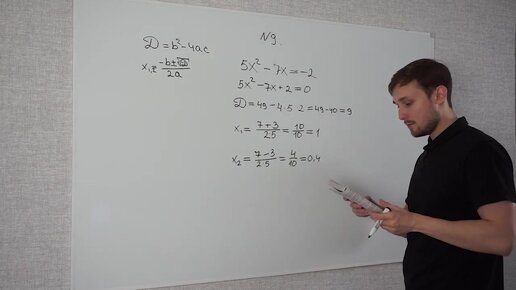 D = b² - 4ac
x₁,₂ = (-b ± √D) / 2a
N9.
5x² - 7x = -2
5x² - 7x + 2 = 0
D = 49 - 4·5·2 = 49 - 40 = 9
x₁ = (7 + 3) / 2·5 = 10/10 = 1
x₂ = (7 - 3) / 2·5 = 4/10 = 0,4